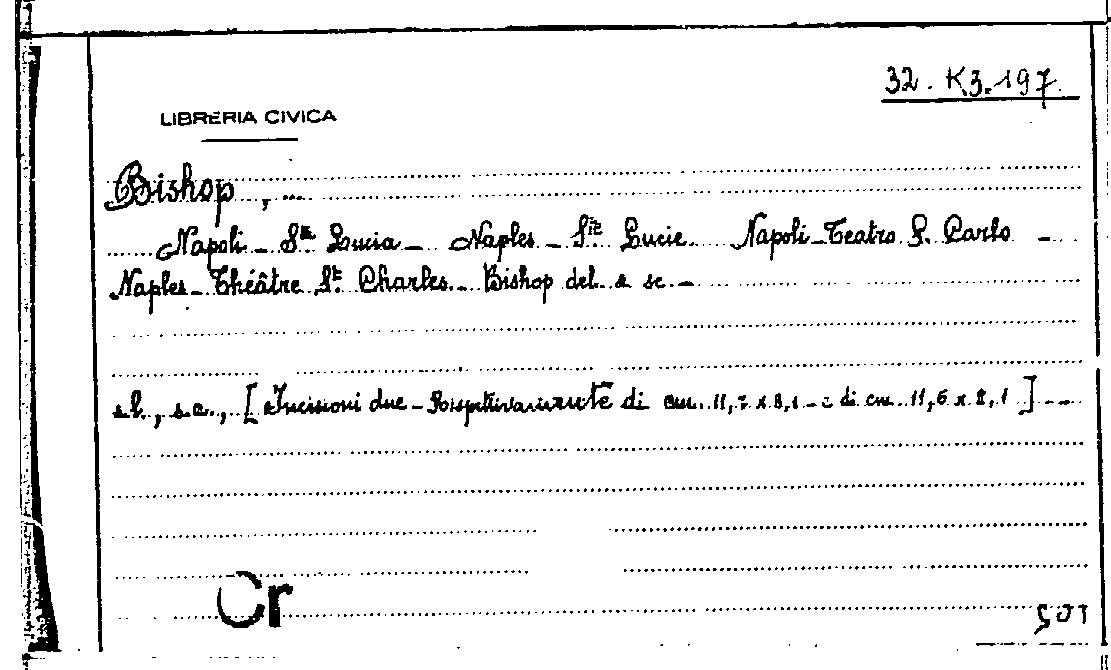 32. K3. 197
LIBRERIA CIVICA
Bishop, ...
Napoli - Sta Lucia - Naples - Ste Lucie Napoli - Teatro S. Carlo -
Naples - Théâtre St. Charles - Bishop del. & sc. -
s.l., s.a., [Incisioni due - Rispettivamente di cm. 11,7 x 8,1 - e di cm. 11,6 x 8,1] --
Cr